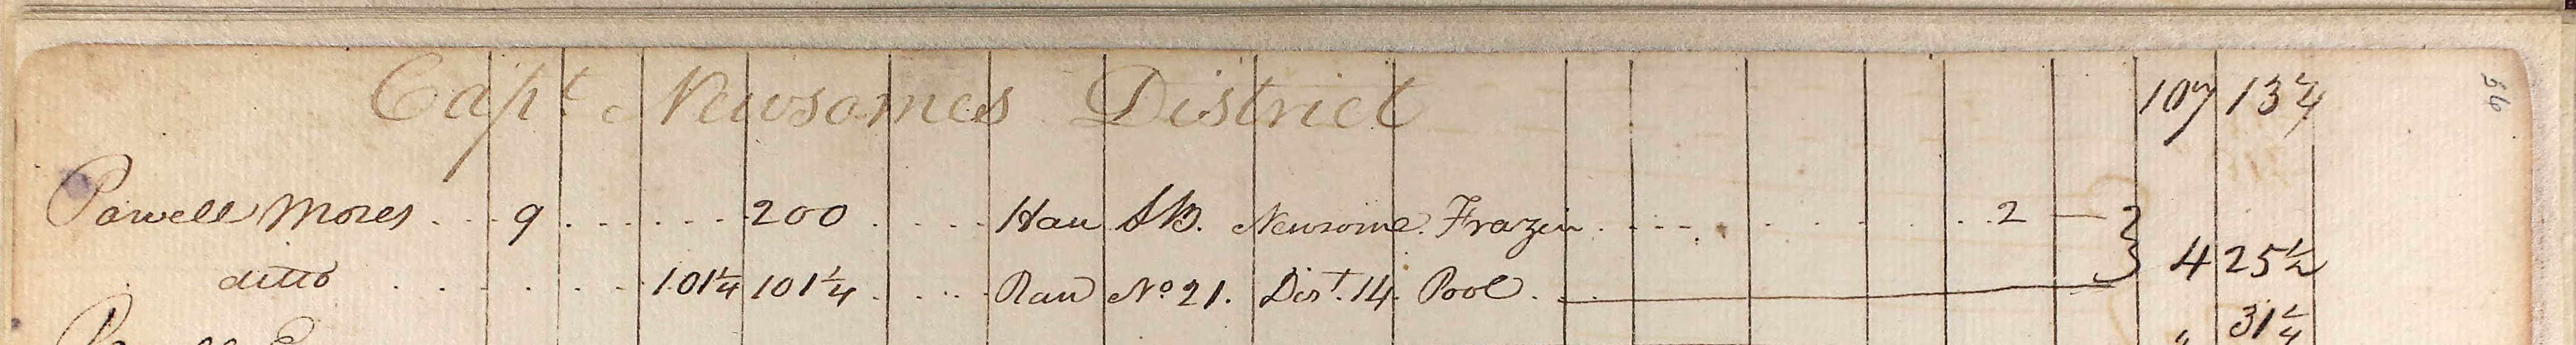 Capt Newsomes District 107 13 3/4
56
Powell Moses 9 200 Han SB. Newsome Frazin 2
ditto 101 1/4 101 1/4 Ran No 21. Dist. 14 Pool 4 25 1/2
" 31 1/4